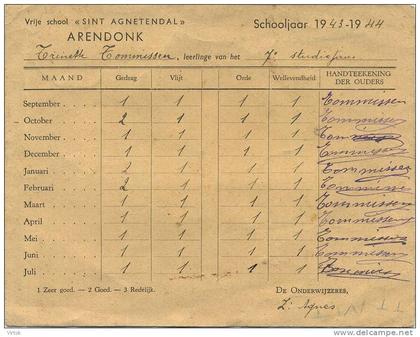 Vrije school «SINT AGNETENDAL»
ARENDONK
Schooljaar 1943-1944
Trinette Tommissen, leerlinge van het 7e studiejaar
MAAND Gedrag Vlijt Orde Wellevendheid HANDTEEKENING DER OUDERS
September 1 1 1 1 Tommissen
October 2 1 1 1 Tommissen
November 1 1 1 1 Tommissen
December 1 1 1 1 Tommissen
Januari 2 1 1 1 Tommissen
Februari 2 1 1 1 Tommissen
Maart 1 1 1 1 Tommissen
April 1 1 1 1 Tommissen
Mei 1 1 1 1 Tommissen
Juni 1 1 1 1 Tommissen
Juli 1 1 1 1
1 Zeer goed. — 2 Goed. — 3 Redelijk.
DE ONDERWIJZERES,
Zr Agnes
delcampe.net